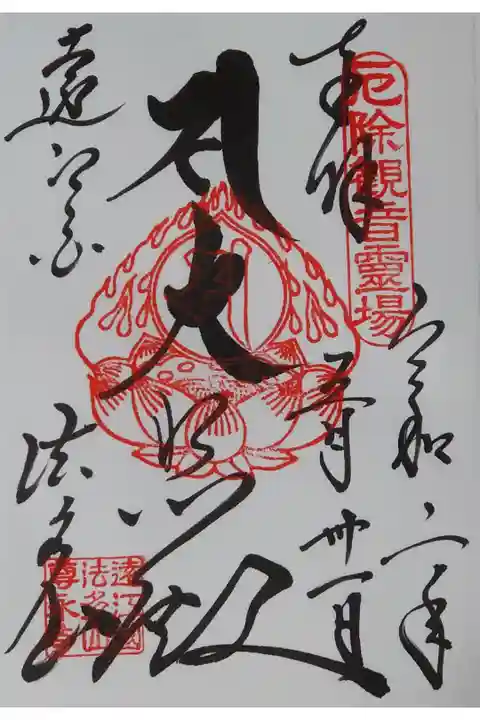 厄除観音靈場
奉拝
令和
年
月卅一日
大悲殿
遠江国
法多山
遠江國
法多山
尊永寺